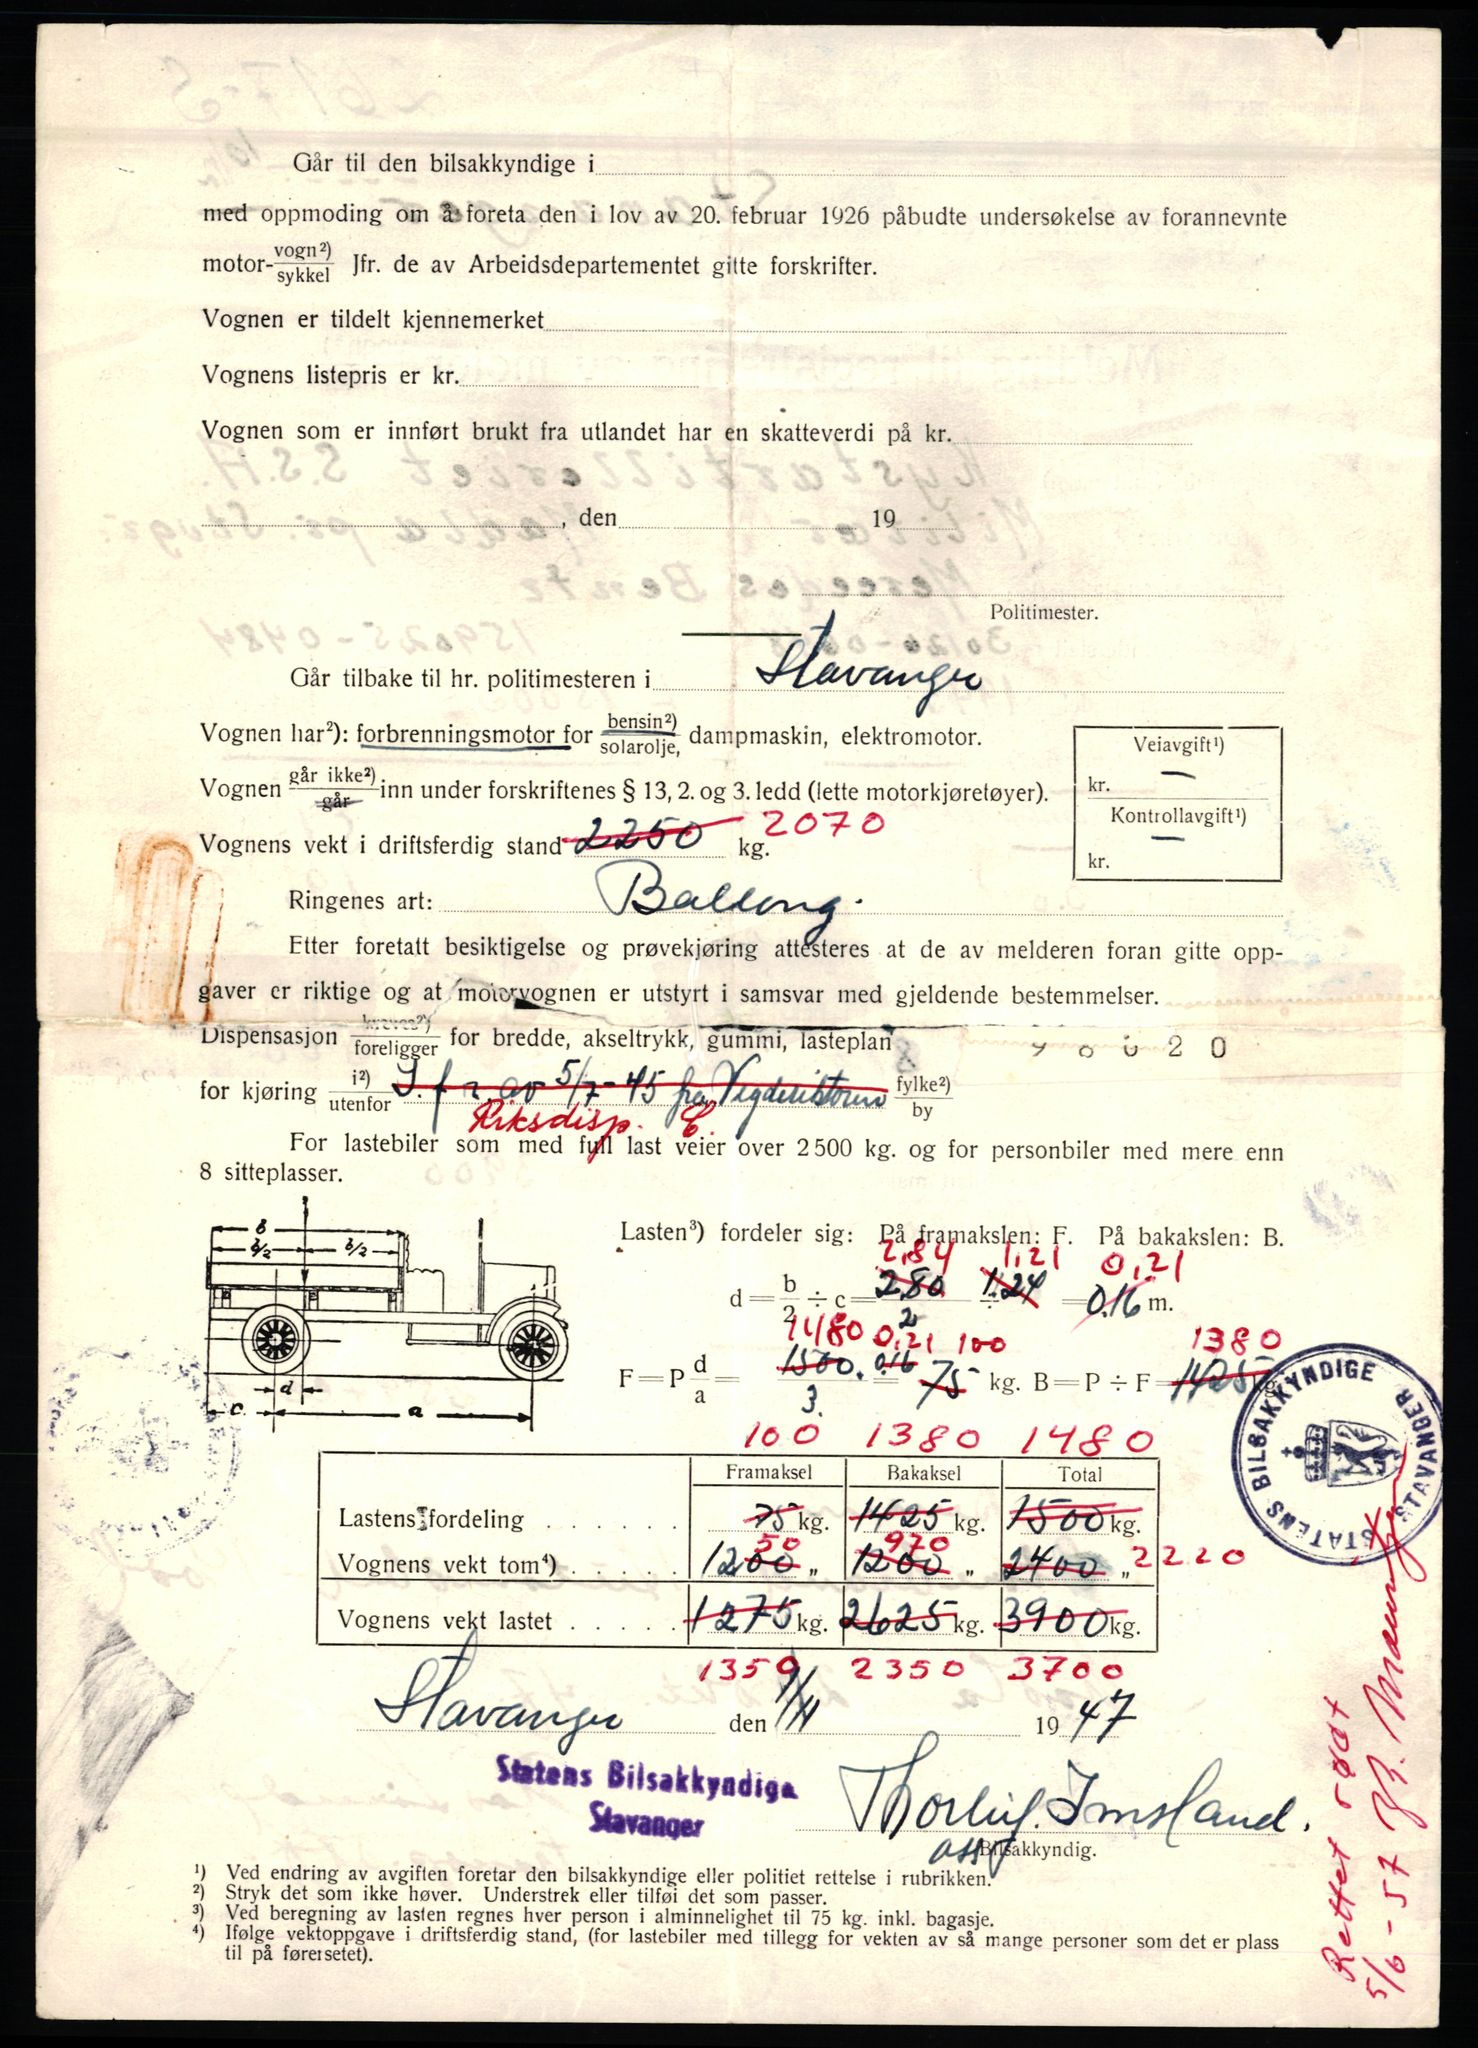 Går til den bilsakkyndige i
med oppmoding om å foreta den i lov av 20. februar 1926 påbudte undersøkelse av forannevnte
motor- vogn²) / sykkel Jfr. de av Arbeidsdepartementet gitte forskrifter.
Vognen er tildelt kjennemerket
Vognens listepris er kr.
Vognen som er innført brukt fra utlandet har en skatteverdi på kr.
, den 19
Politimester.
Går tilbake til hr. politimesteren i Stavanger
Vognen har²): forbrenningsmotor for bensin²) / solarolje, dampmaskin, elektromotor.
Veiavgift¹)
kr. —
Kontrollavgift¹)
kr. —
Vognen går ikke²) / går inn under forskriftenes § 13, 2. og 3. ledd (lette motorkjøretøyer).
Vognens vekt i driftsferdig stand 2250 kg. 2070
Ringenes art: Ballong.
Etter foretatt besiktigelse og prøvekjøring attesteres at de av melderen foran gitte opp-
gaver er riktige og at motorvognen er utstyrt i samsvar med gjeldende bestemmelser.
Dispensasjon kreves²) / foreligger for bredde, akseltrykk, gummi, lasteplan
for kjøring i²) / utenfor J. f r. av 5/7-45 fra Vegdirektøren fylke²) / by
Riksdisp. C.
For lastebiler som med full last veier over 2500 kg. og for personbiler med mere enn
8 sitteplasser.
b
b/2 b/2
d
c a
Lasten³) fordeler sig: På framakslen: F. På bakakslen: B.
2,84 1,21 0,21
d = b/2 ÷ c = 2,80/2 ÷ 1,24 = 0,16 m.
1480 0,21 100 1380
F = P d/a = 1500. 0,16 / 3. = 75 kg. B = P ÷ F = 1425 kg.
100 1380 1480
Framaksel Bakaksel Total
Lastens fordeling . . . . . . 75 kg. 1425 kg. 1500 kg.
50 970
Vognens vekt tom⁴) . . . . . 1200 „ 1200 „ 2400 „ 2220
Vognens vekt lastet . . . . . 1275 kg. 2625 kg. 3900 kg.
1350 2350 3700
STATENS BILSAKKYNDIGE STAVANGER
Stavanger den 1/11 19 47
Statens Bilsakkyndige
Stavanger
Thorleif Imsland.
ass
Bilsakkyndig.
¹) Ved endring av avgiften foretar den bilsakkyndige eller politiet rettelse i rubrikken.
²) Stryk det som ikke høver. Understrek eller tilføi det som passer.
³) Ved beregning av lasten regnes hver person i alminnelighet til 75 kg. inkl. bagasje.
⁴) Ifølge vektoppgave i driftsferdig stand, (for lastebiler med tillegg for vekten av så mange personer som det er plass
til på førersetet).
Rettet rødt
5/6-57